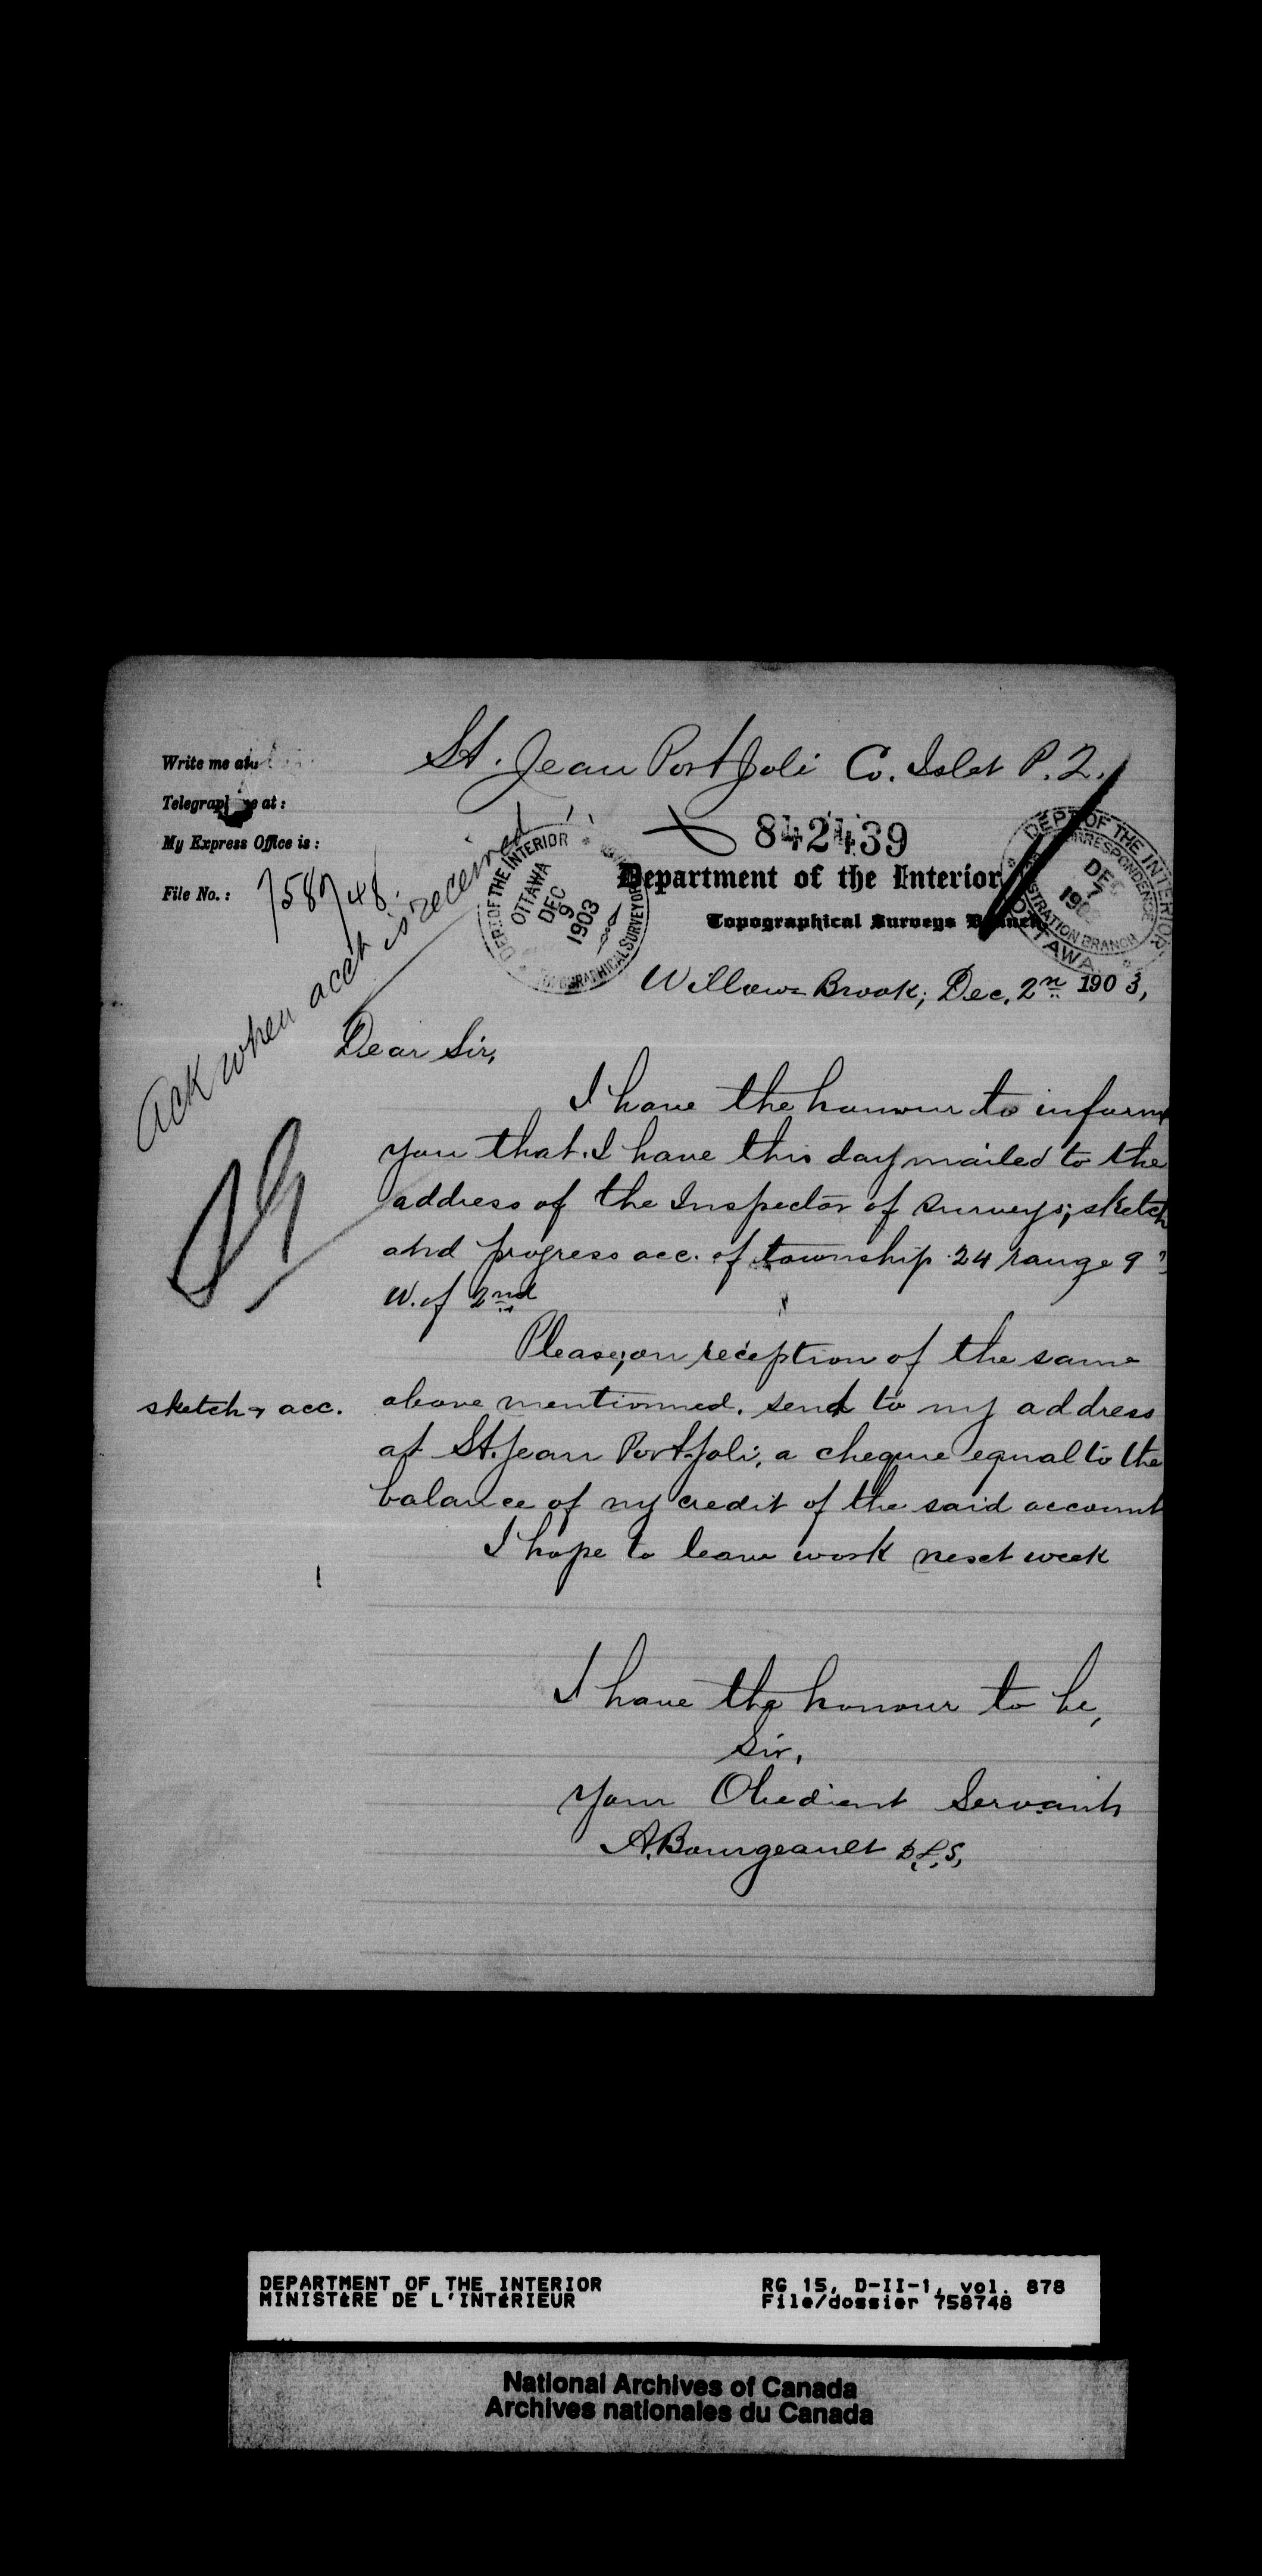 St. Jean Port Joli Co. Islet P.Q.
Write me at:
Telegraph me at:
My Express Office is:
File No.: 758748.
842439
DEPT. OF THE INTERIOR
OTTAWA
DEC
9
1903
TOPOGRAPHICAL SURVEYS
DEPT. OF THE INTERIOR
CORRESPONDENCE
DEC
7
REGISTRATION BRANCH
OTTAWA
Department of the Interior
Topographical Surveys Branch
Willow-Brook; Dec. 2n 1903,
Ack when acct is received
Dear Sir,
I have the honour to inform
you that I have this day mailed to the
address of the Inspector of Surveys; sketch
and progress acc. of township 24 range 9
W. of 2nd
Please, on reception of the same
sketch & acc.
above mentionned, send to my address
at St. Jean Port Joli, a cheque equal to the
balance of my credit of the said account
I hope to leave work next week
I have the honour to be,
Sir,
Your Obedient Servant
A. Bourgeault D.L.S.
DEPARTMENT OF THE INTERIOR
MINISTÈRE DE L'INTÉRIEUR
RG 15, D-II-1, vol. 878
File/dossier 758748
National Archives of Canada
Archives nationales du Canada